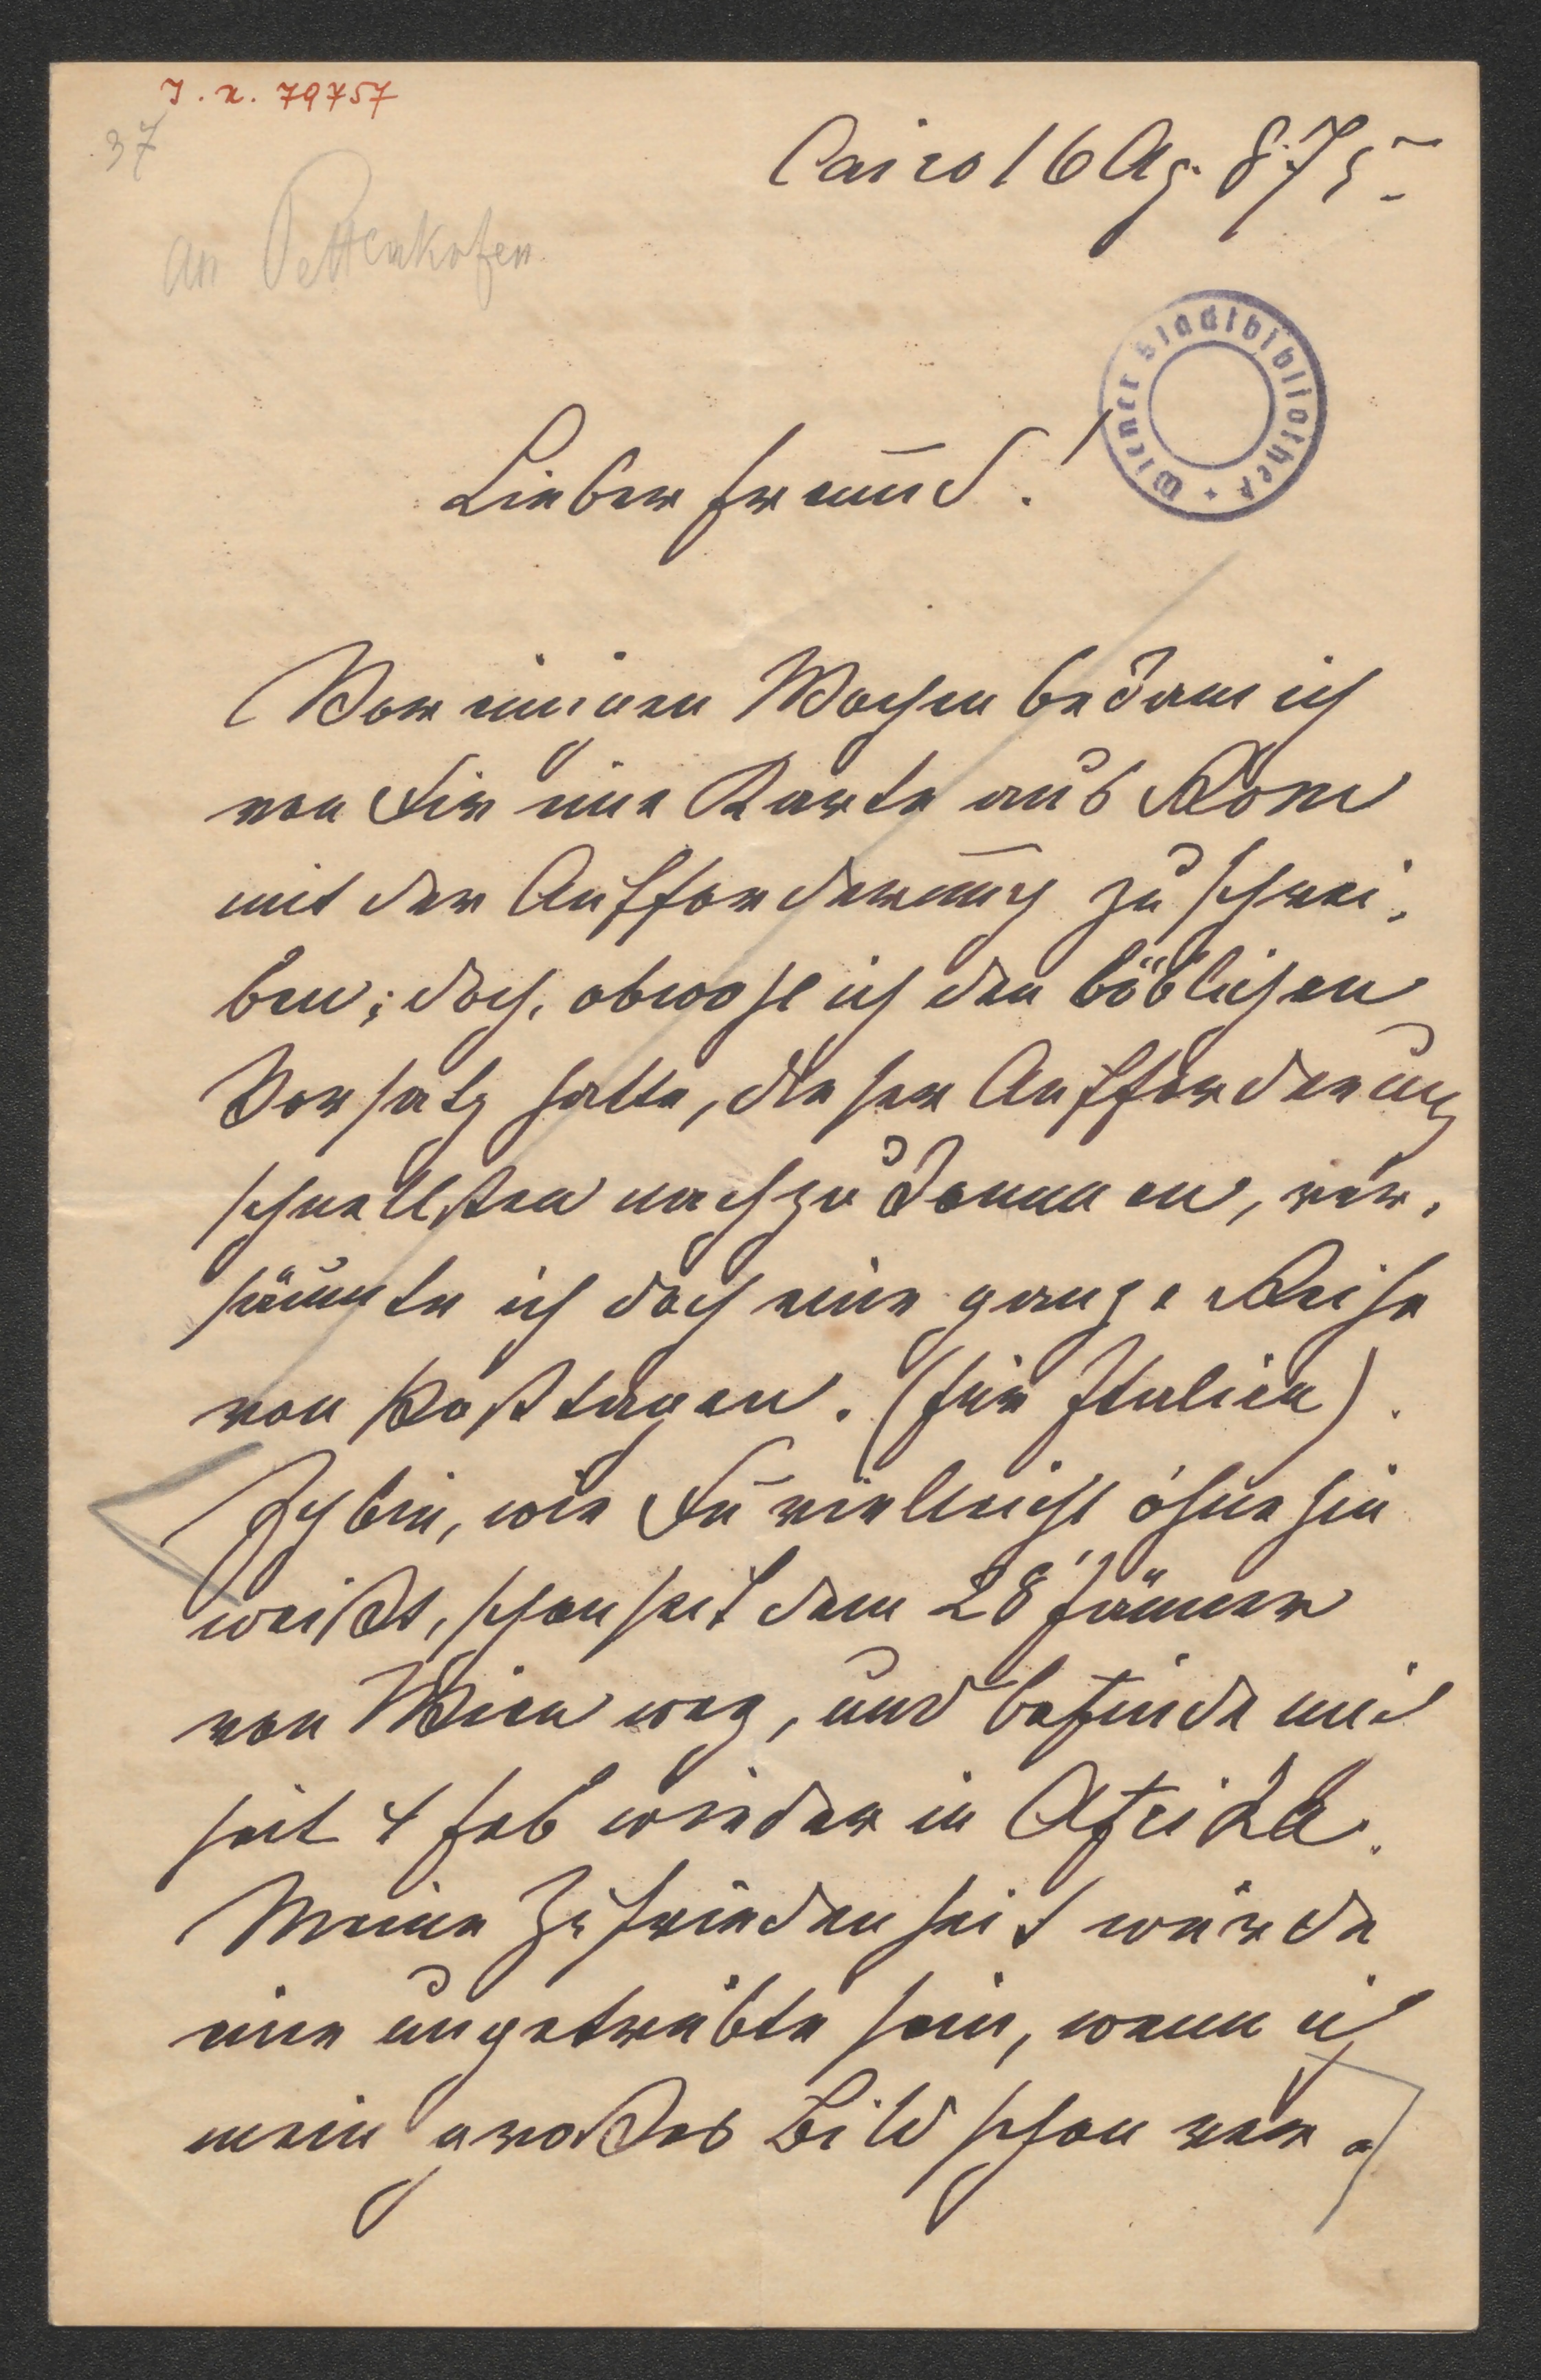 J. N. 79757
37
Cairo 16 Ap. 875
an Pettenkofen
Wiener Stadtbibliothek
Lieber Freund!
Vor einigen Wochen bekam ich
von Dir eine Karte aus Rom
mit der Aufforderung zu schrei-
ben; doch, obwohl ich den löblichen
Vorsatz hatte, dieser Aufforderung
schnellsten nachzukommen, ver-
säumte ich doch eine ganze Reihe
von Posttagen. (für Italien).
Ich bin, wie Du vielleicht ohnehin
weißt, schon seit dem 28 Jänner
von Wien weg, und befinde mich
seit 4 Feb wieder in Afrika.
Meine Zufriedenheit würde
eine ungetrübte sein, wenn ich
mein großes Bild schon ver-